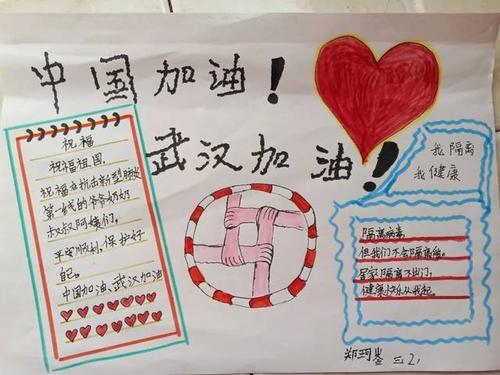 中国加油！
武汉加油！
祝福
祝福祖国，
祝福在抗击新型肺炎
第一线的爷爷奶奶
叔叔阿姨们。
平安顺利，保护好
自己。
中国加油、武汉加油
我隔离
我健康
隔离病毒，
但我们不会隔离爱。
居家隔离不出门，
健康快乐从我起。
郑珂 三2，